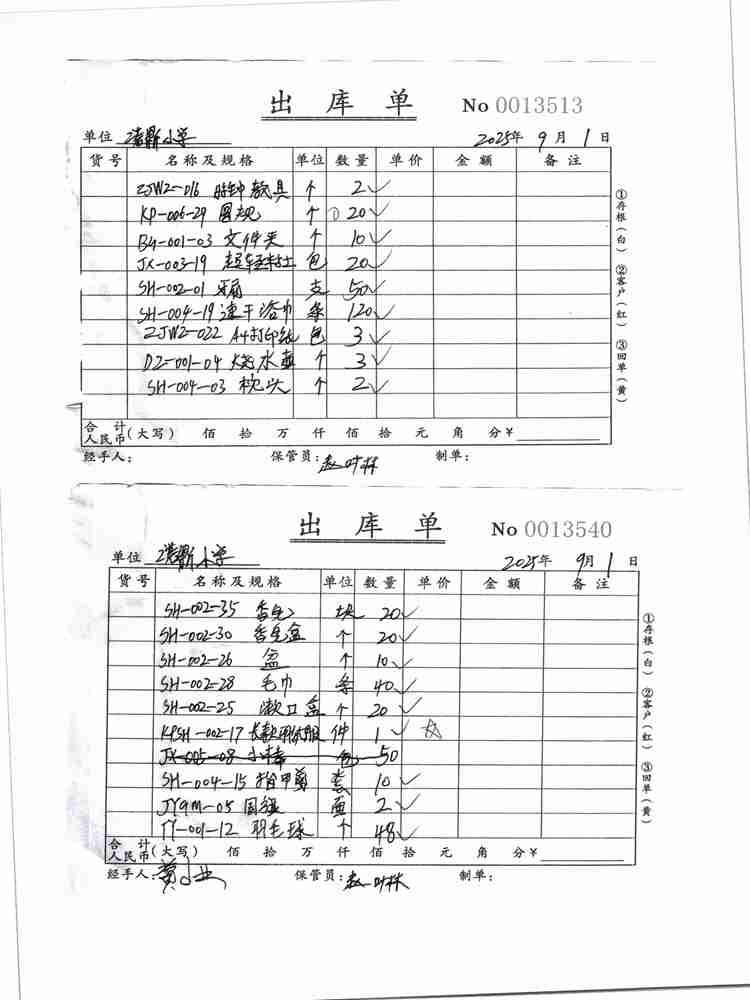 出 库 单 No 0013513
单位 清新小学 2025年 9月 1日
货号 名称及规格 单位 数量 单价 金额 备注
ZJWZ-016 时钟教具 个 2✓
KP-006-29 圆规 个 20✓
B4-001-03 文件夹 个 10✓
JX-003-19 超轻粘土 包 20✓
SH-002-01 牙膏 支 50✓
SH-004-19 速干浴巾 条 120✓
ZJWZ-022 A4打印纸 包 3✓
DZ-001-04 烧水壶 个 3✓
SH-004-03 枕头 个 2✓
合计人民币(大写) 佰 拾 万 仟 佰 拾 元 角 分¥
经手人: 保管员:赵叶林 制单:
①存根(白) ②客户(红) ③回单(黄)
出 库 单 No 0013540
单位 清新小学 2025年 9月 1日
货号 名称及规格 单位 数量 单价 金额 备注
SH-002-35 香皂 块 20✓
SH-002-30 香皂盒 个 20✓
SH-002-26 盆 个 10✓
SH-002-28 毛巾 条 40✓
SH-002-25 漱口盒 个 20✓
KPSH-002-17 长款羽绒服 件 1✓ ☆
JX-005-08 小棒 包 50
SH-004-15 指甲剪 套 10✓
JYGM-05 国旗 面 2✓
TY-001-12 羽毛球 个 48✓
合计人民币(大写) 佰 拾 万 仟 佰 拾 元 角 分¥
经手人:黄小业 保管员:赵叶林 制单:
①存根(白) ②客户(红) ③回单(黄)